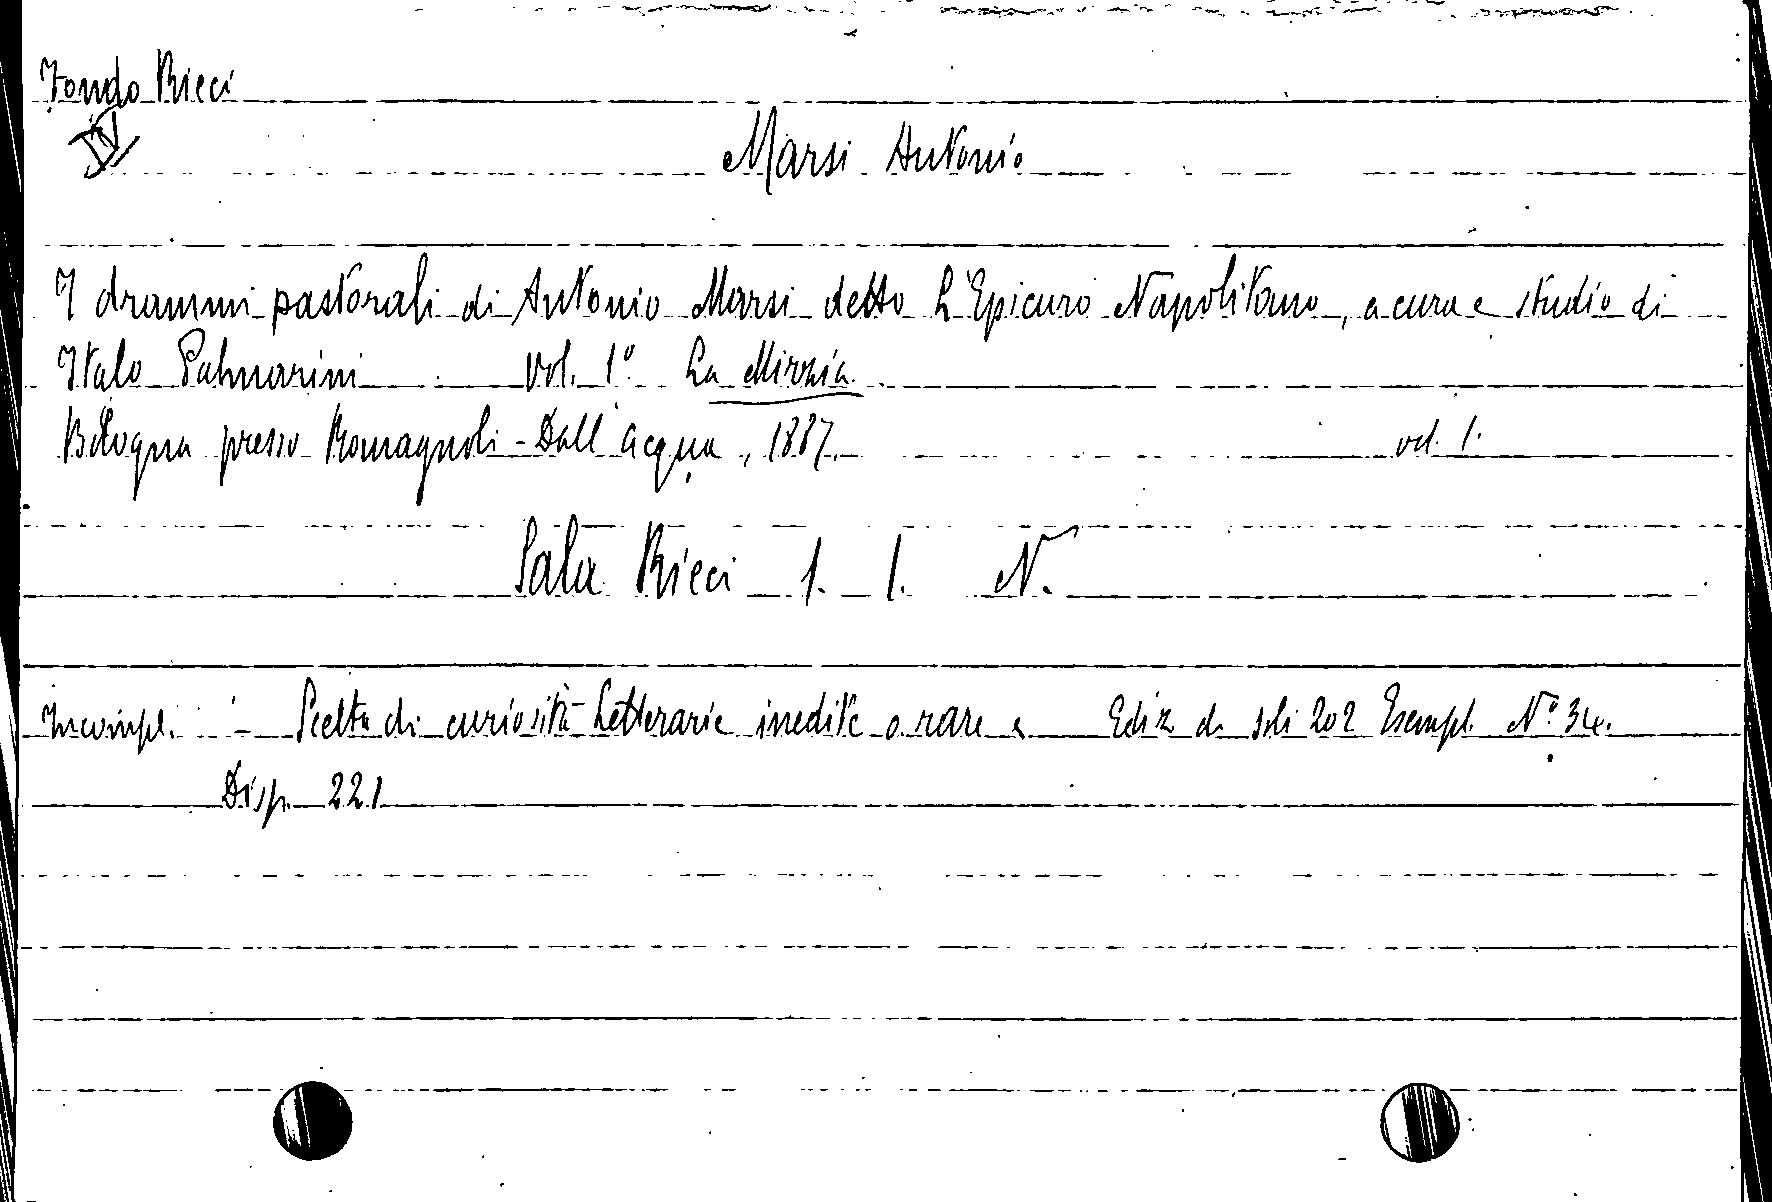 Fondo Ricci
IV
Marsi Antonio
I drammi pastorali di Antonio Marsi detto L'Epicuro Napolitano, a cura e studio di
Italo Palmarini vol. 1º La Mirzia.
Bologna presso Romagnoli-Dall'acqua, 1887. vol. 1.
Sala Ricci 1. 1. N.
Incompl. - Scelta di curiosità Letterarie inedite o rare Ediz di soli 202 Esempl. Nº 34.
Disp. 221